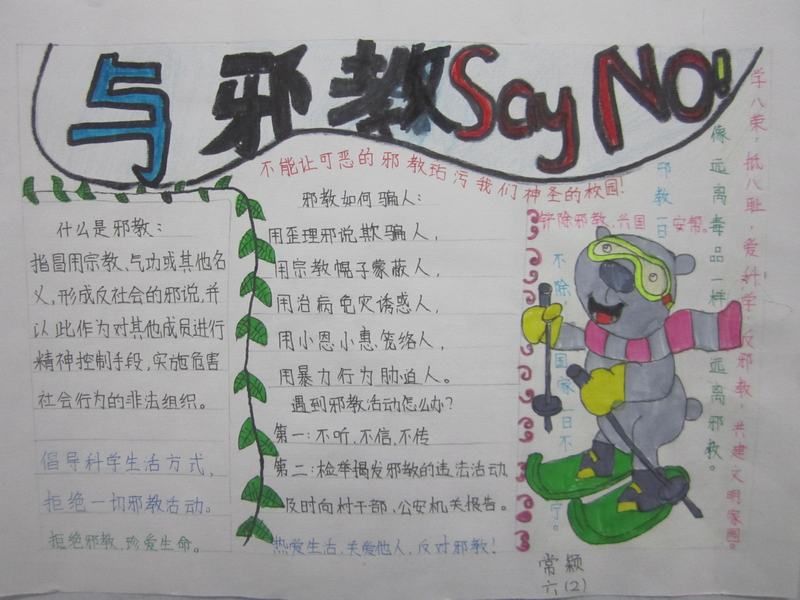 与邪教Say No!
不能让可恶的邪教玷污我们神圣的校园!
什么是邪教:
指冒用宗教、气功或其他名
义,形成反社会的邪说,并
以此作为对其他成员进行
精神控制手段,实施危害
社会行为的非法组织。
倡导科学生活方式,
拒绝一切邪教活动。
拒绝邪教,珍爱生命。
邪教如何骗人:
用歪理邪说欺骗人,
用宗教幌子蒙蔽人,
用治病免灾诱惑人,
用小恩小惠笼络人,
用暴力行为胁迫人。
遇到邪教活动怎么办?
第一:不听,不信,不传
第二:检举揭发邪教的违法活动
及时向村干部,公安机关报告。
热爱生活,关爱他人,反对邪教!
铲除邪教,兴国安帮。
邪教一日
不除,国家一日不宁。
像远离毒品一样远离邪教。
学八荣,抵八耻,爱科学,反邪教,共建文明家园。
常颖
六(2)